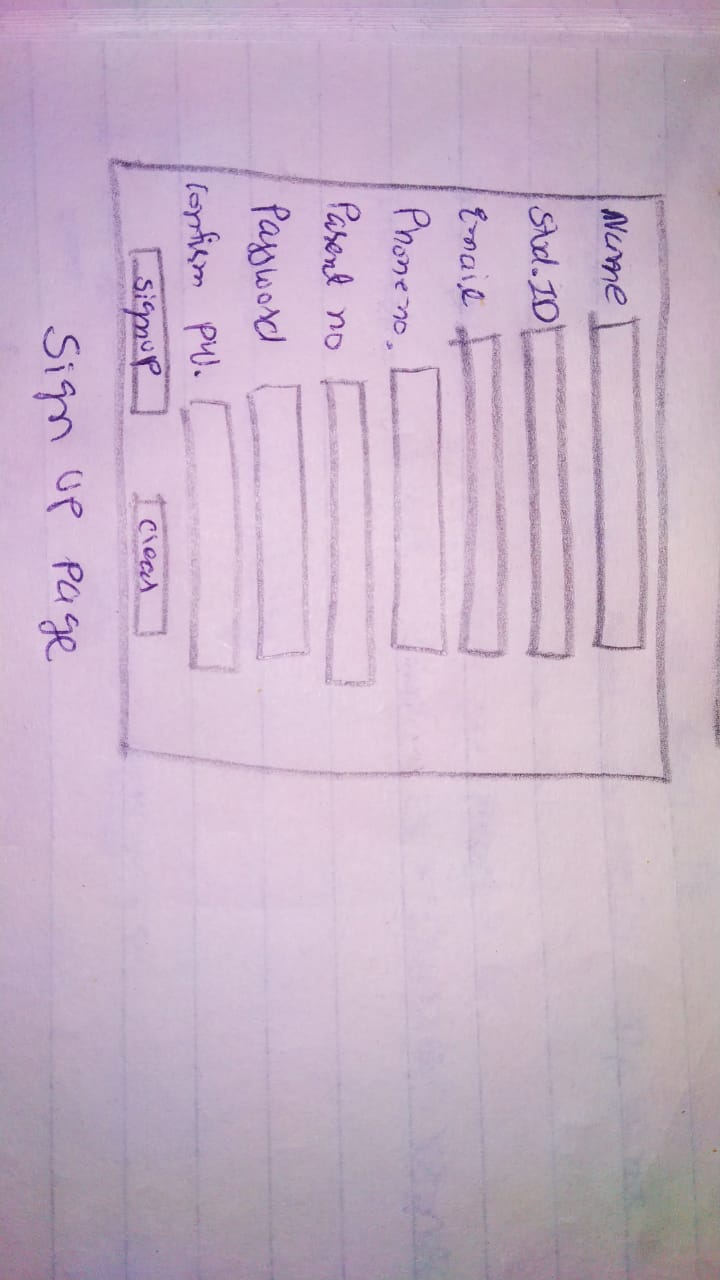 Name
Std. ID
Email
Phone no.
Parent no
Password
Confirm pw.
Signup
Clear
Sign up page